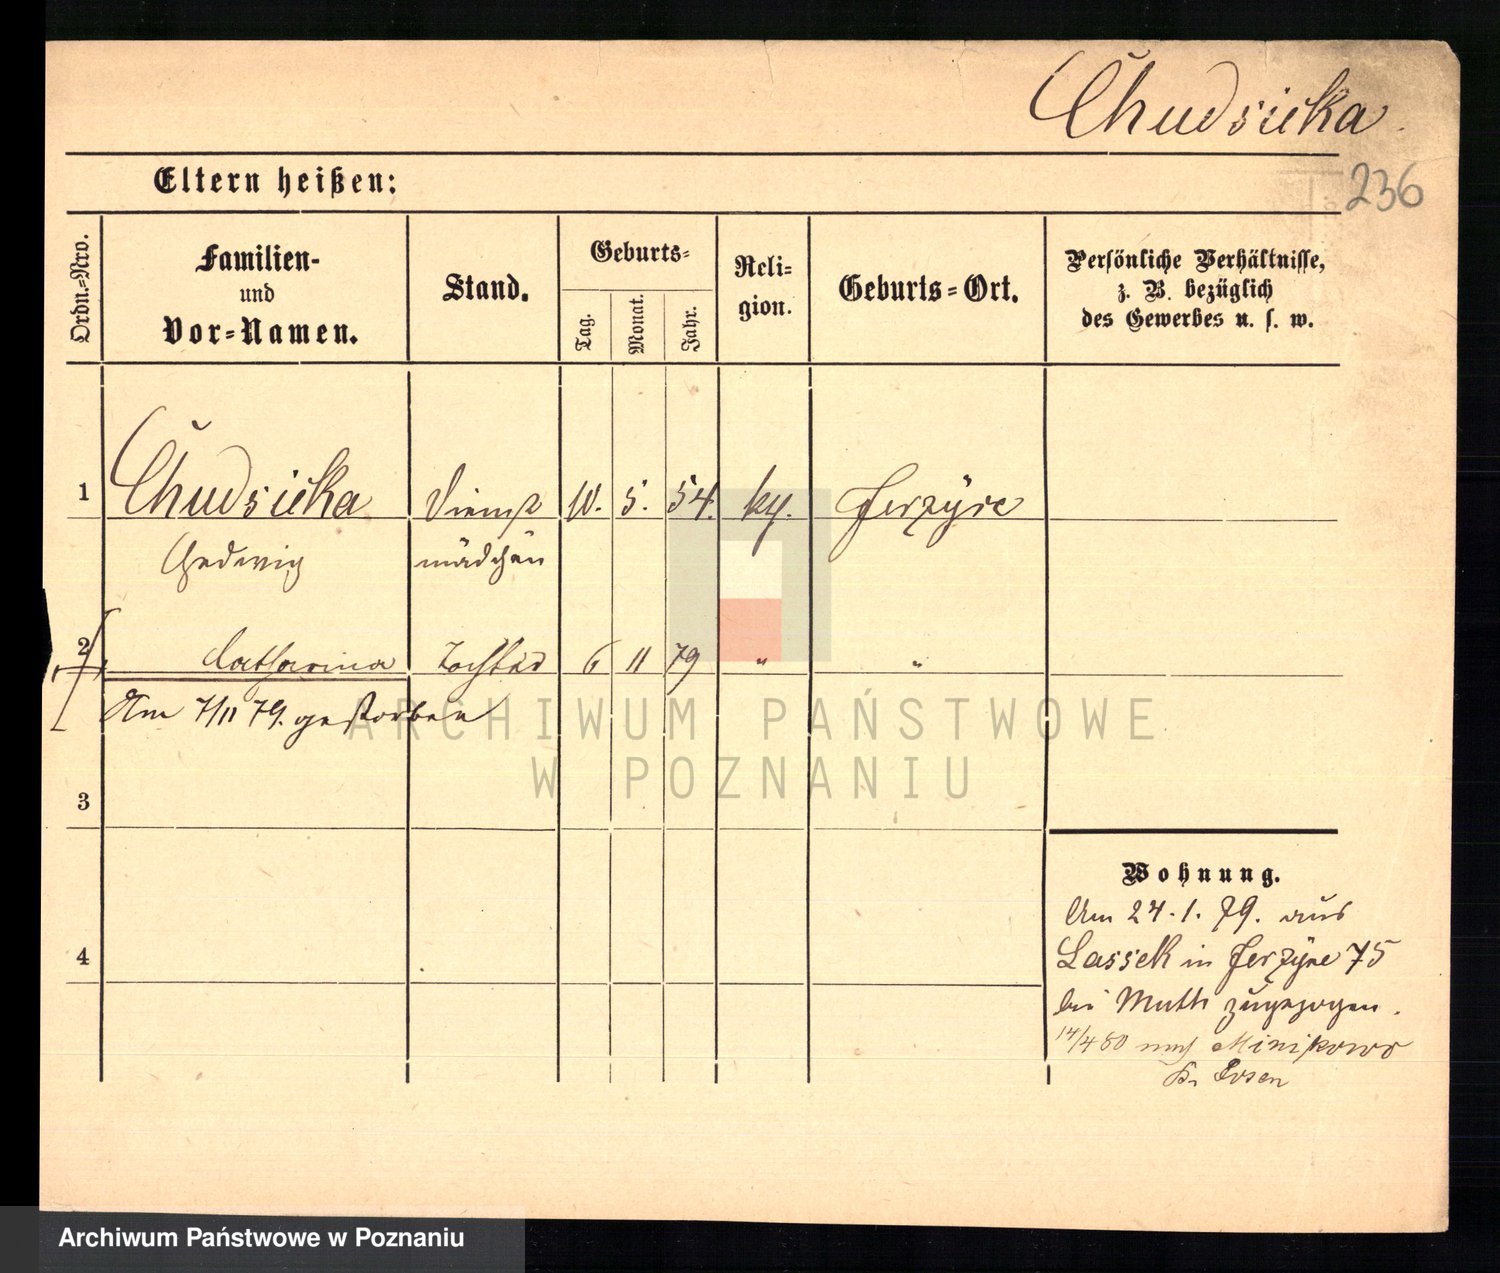 Chudsicka.
Eltern heißen:
236
Ordn.=Nro.
Familien-
und
Vor=Namen.
Stand.
Geburts=
Tag.
Monat.
Jahr.
Reli=
gion.
Geburts=Ort.
Persönliche Verhältnisse,
z. B. bezüglich
des Gewerbes u. s. w.
1 Chudsicka Dienst 10. 5. 54. kth. Jerzyce
Hedwig mädchen
2 Catharina Tochter 6 11 79 " "
Am 7/11 79. gestorben
3
4
Wohnung.
Am 24. 1. 79. aus
Lassek in Jerzyce 75
bei Muth zugezogen.
14/4 80 nach Minikowo
Kr. Posen
ARCHIWUM PAŃSTWOWE
W POZNANIU
Archiwum Państwowe w Poznaniu